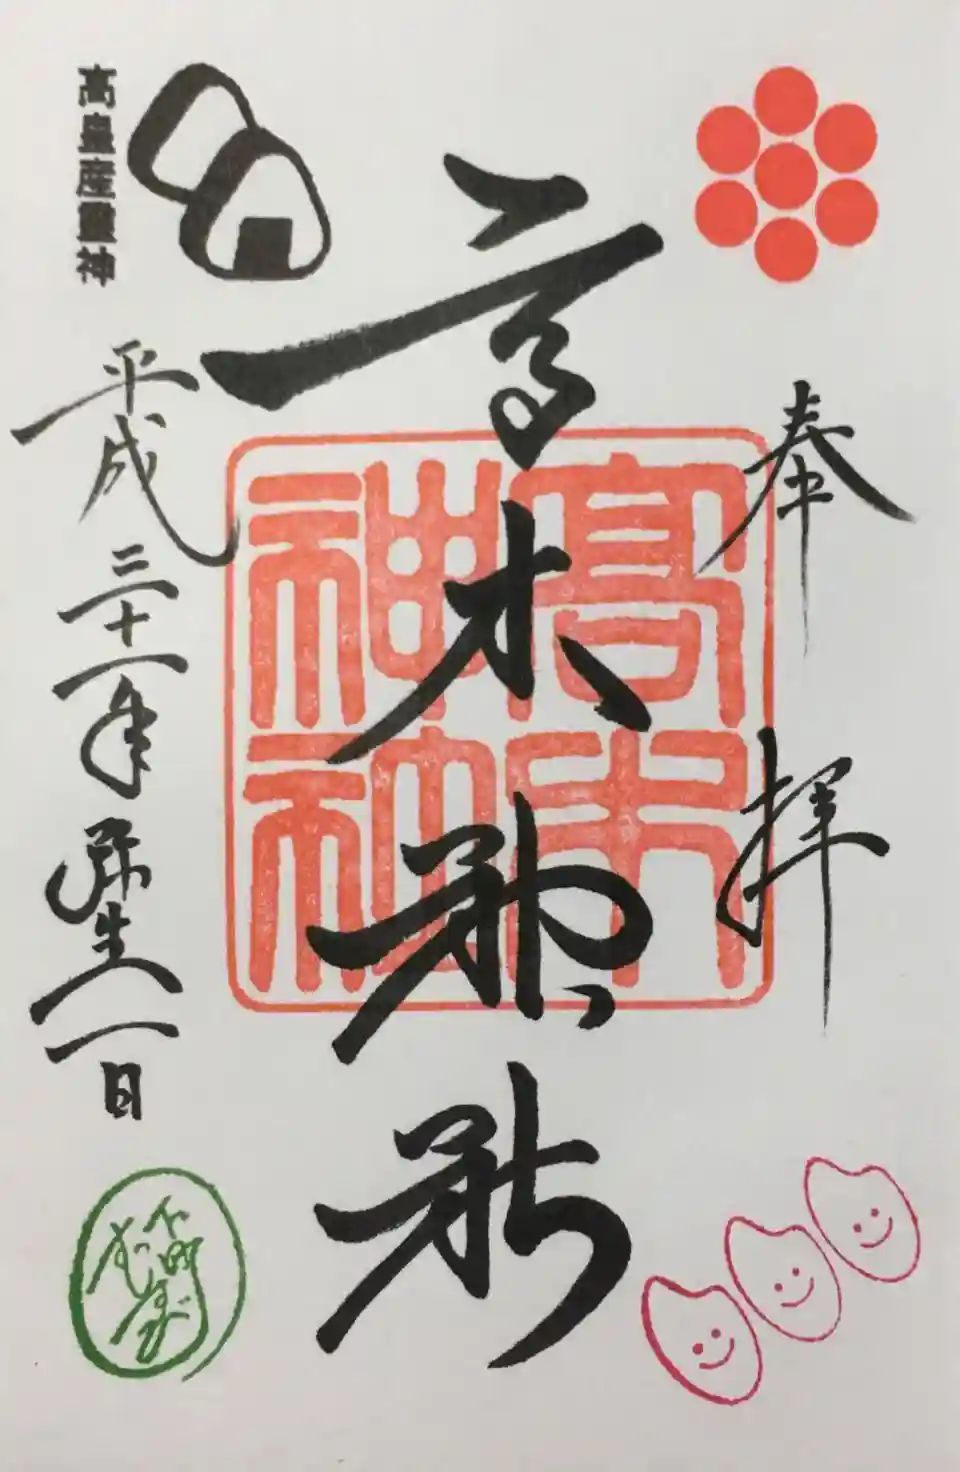 奉拝
高木神社
高木
神社
高皇産靈神
平成三十一年弥生二日